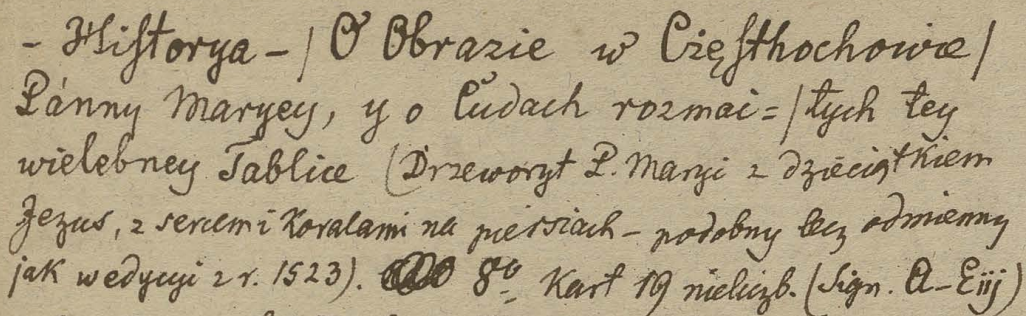 - Hiſtorya - / O Obrazie w Cżęſthochowie /
Pánny Maryey, y o Cudach rozmai= / tych tey
wielebney Tablice (Drzeworyt P. Maryi z dzieciątkiem
Jezus, z sercem i koralami na piersiach - podobny lecz odmienny
jak w edycyi z r. 1523). 8º. Kart 19 nieliczb. (Sign. A-Eiij)